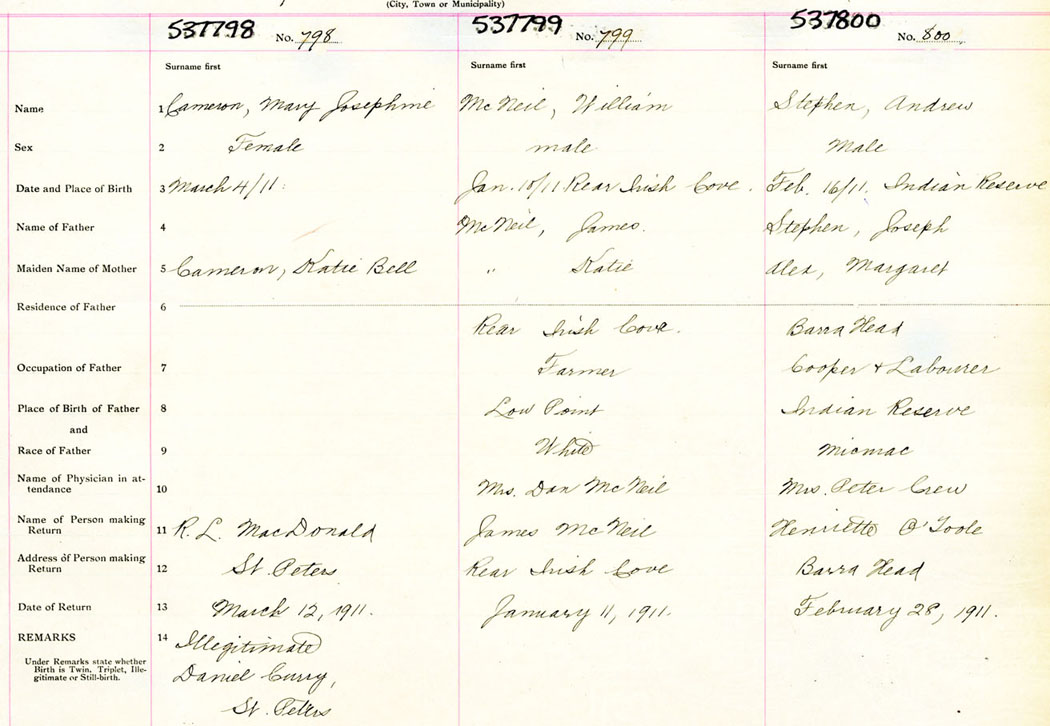 (City, Town or Municipality)
537798 No. 798 537799 No. 799 537800 No. 800
Surname first Surname first Surname first
Name 1 Cameron, Mary Josephine McNeil, William Stephen, Andrew
Sex 2 Female male Male
Date and Place of Birth 3 March 4/11. Jan. 10/11 Rear Irish Cove. Feb. 16/11. Indian Reserve
Name of Father 4 McNeil, James. Stephen, Joseph
Maiden Name of Mother 5 Cameron, Katie Bell " Katie Alex, Margaret
Residence of Father 6
Rear Irish Cove. Barra Head
Occupation of Father 7 Farmer Cooper & Labourer
Place of Birth of Father 8 Low Point Indian Reserve
and
Race of Father 9 White Micmac
Name of Physician in at-
tendance 10 Mrs. Dan McNeil Mrs. Peter Crew
Name of Person making
Return 11 R. L. MacDonald James McNeil Henriette O'Toole
Address of Person making
Return 12 St. Peters Rear Irish Cove Barra Head
Date of Return 13 March 12, 1911. January 11, 1911. February 28, 1911.
REMARKS 14 Illegitimate
Under Remarks state whether
Birth is Twin, Triplet, Ille-
gitimate or Still-birth.
Daniel Curry,
St. Peters